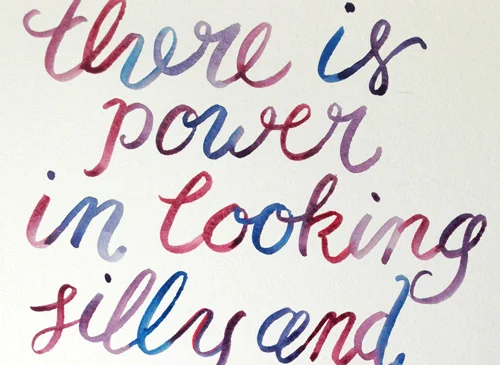 there is
power
in looking
silly and